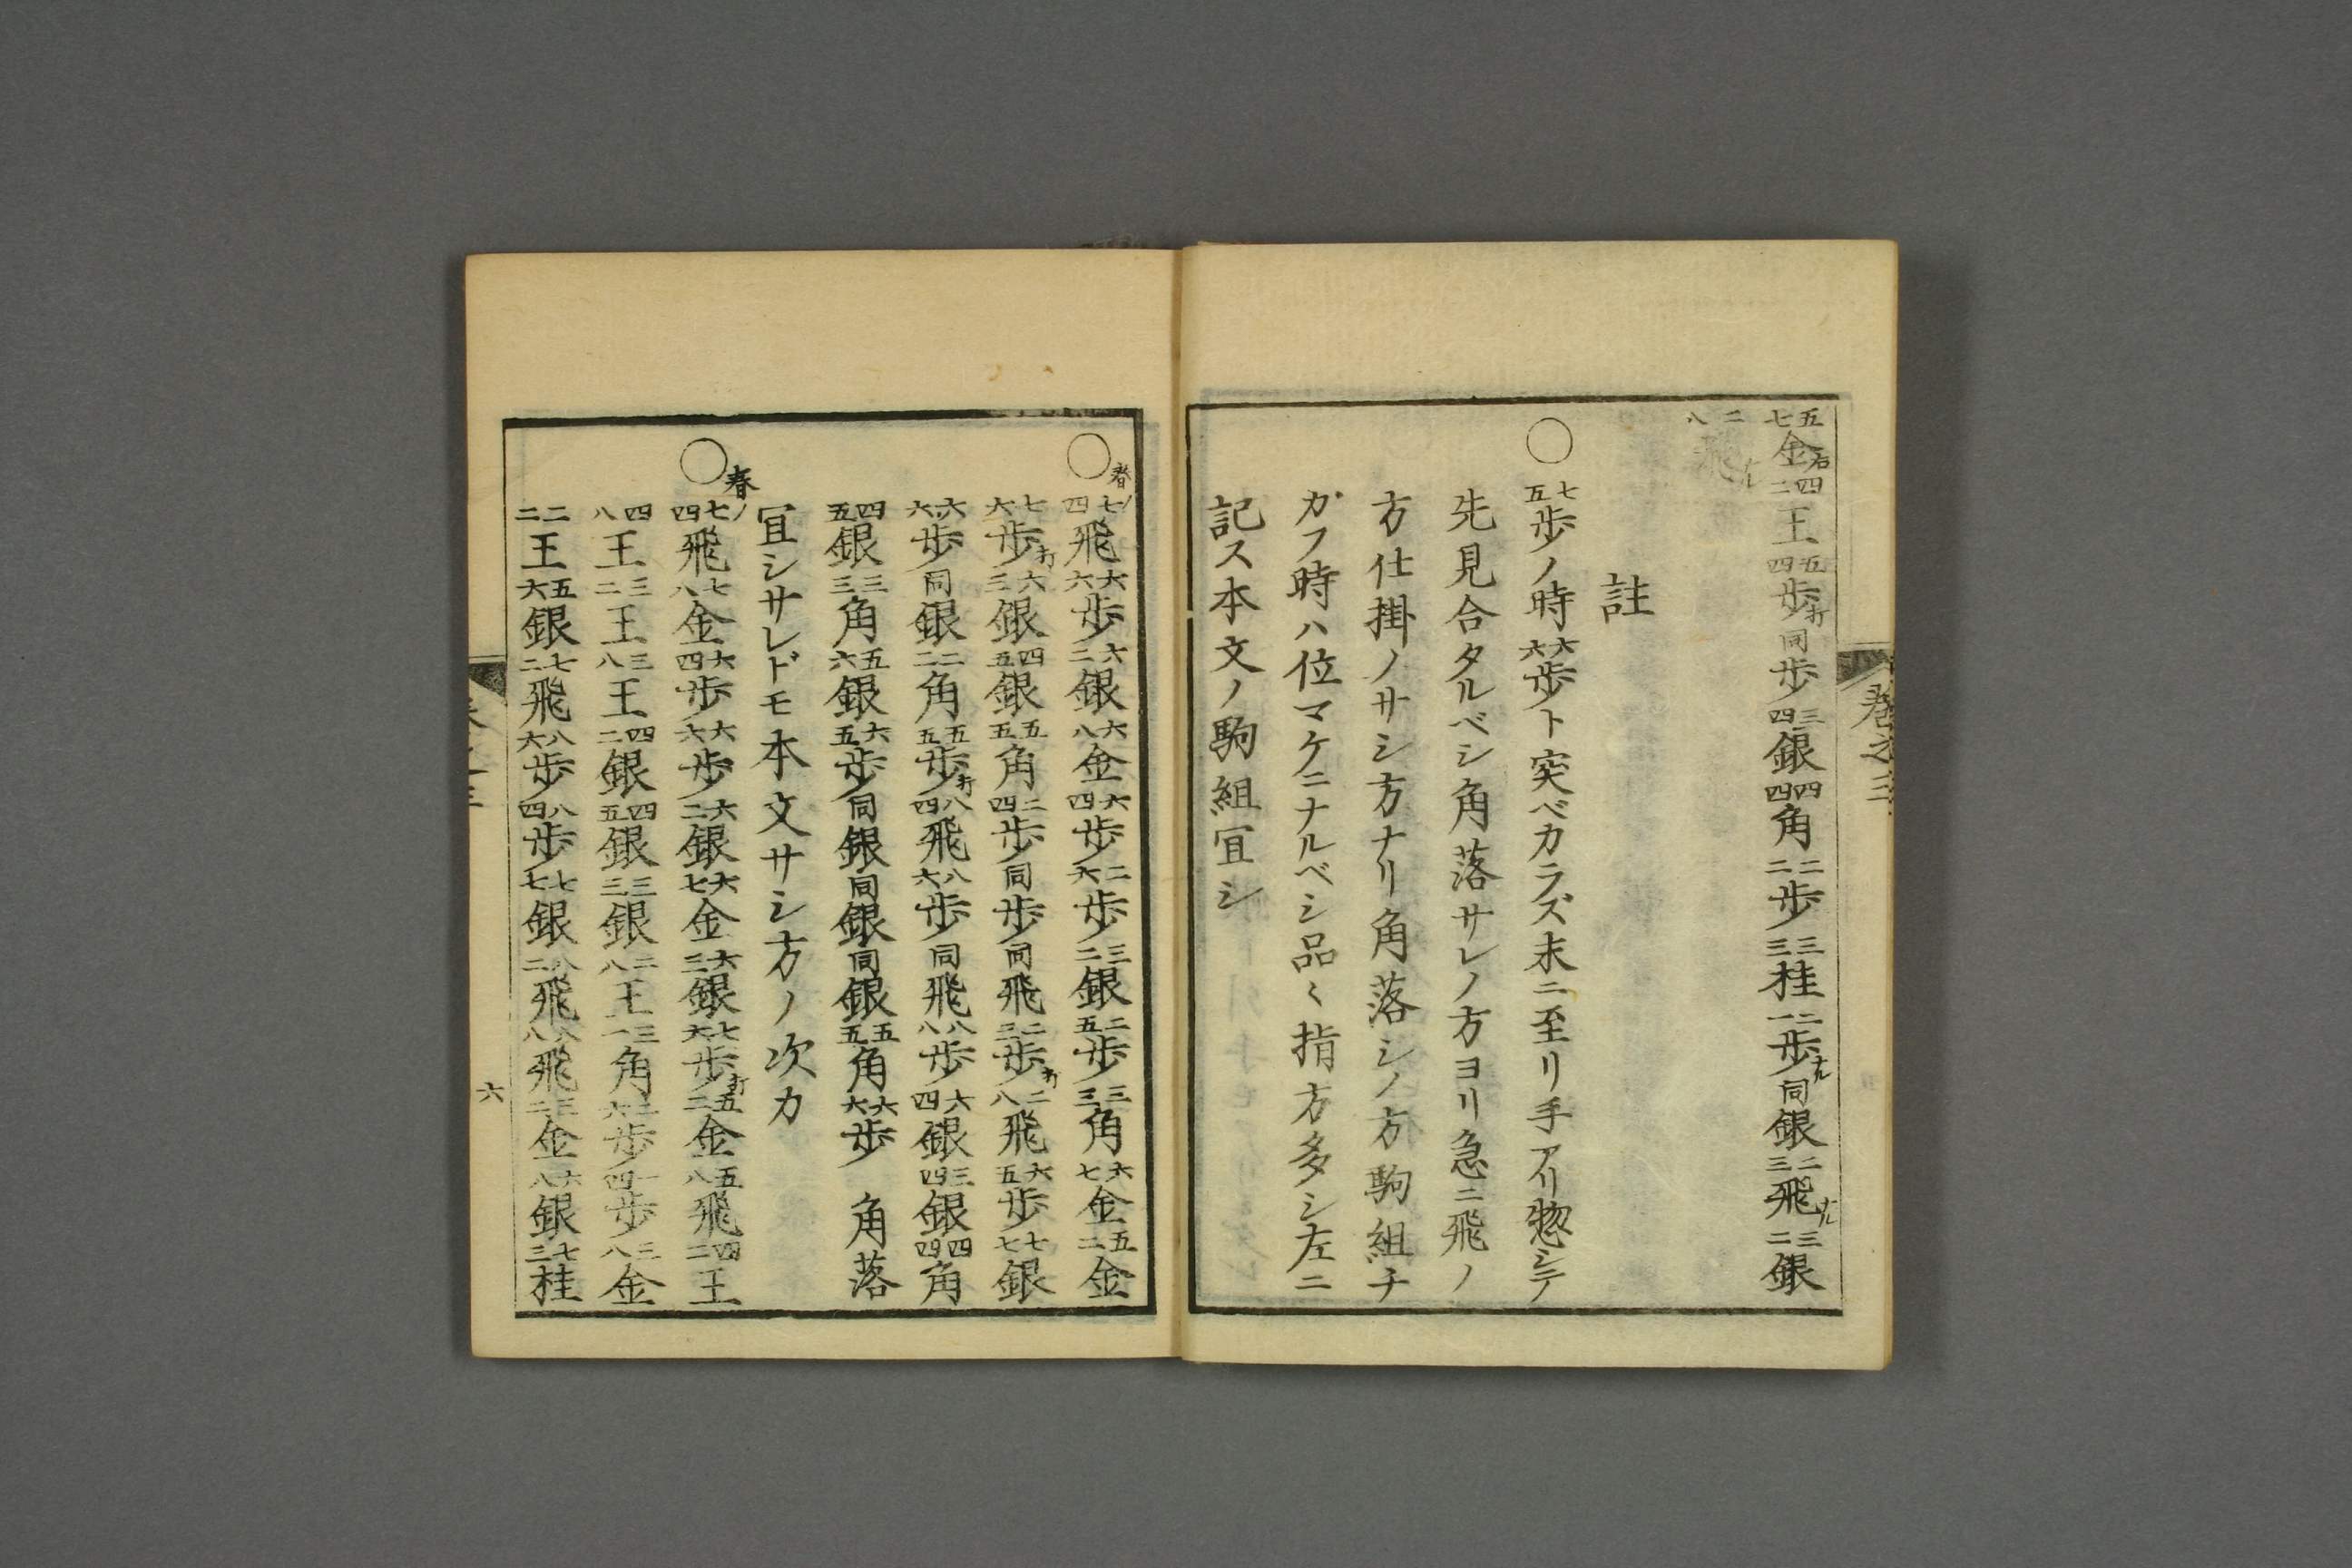 五七金右四二王五四歩打同歩三四銀四四角二二歩三三桂二一歩ナル同銀二三飛ナル三二銀
二八飛ナル
註
○七五歩ノ時六六歩ト突ベカラズ末ニ至リ手アリ惣シテ
先見合タルベシ角落サレノ方ヨリ急ニ飛ノ
方仕掛ノサシ方ナリ角落シノ方駒組チ
ガフ時ハ位マケニナルベシ品〱指方多シ左ニ
記ス本文ノ駒組冝シ
巻之三
○春ノ七四飛六六歩六二銀六八金六四歩二六歩三二銀二五歩三三角六七金五二金
七六歩打六三銀四五銀五五角二四歩同歩同飛二三歩打二八飛六五歩七七銀
六六歩同銀二二角五五歩打八四飛八六歩同飛八八歩六四銀三四銀四四角
四五銀三三角五六銀六五歩同銀同銀同銀五五角六六歩 角落
冝シサレドモ本文サシ方ノ次カ
○春ノ七四飛七八金六四歩六六歩六二銀六七金六三銀七六歩打五二金五八飛四二王
四八王三二王三八王四二銀四五銀三三銀二八王三一角二六歩一四歩三八金
二二王五六銀七二飛八六歩八四歩七七銀八二飛八八飛三二金六八銀七三桂
六